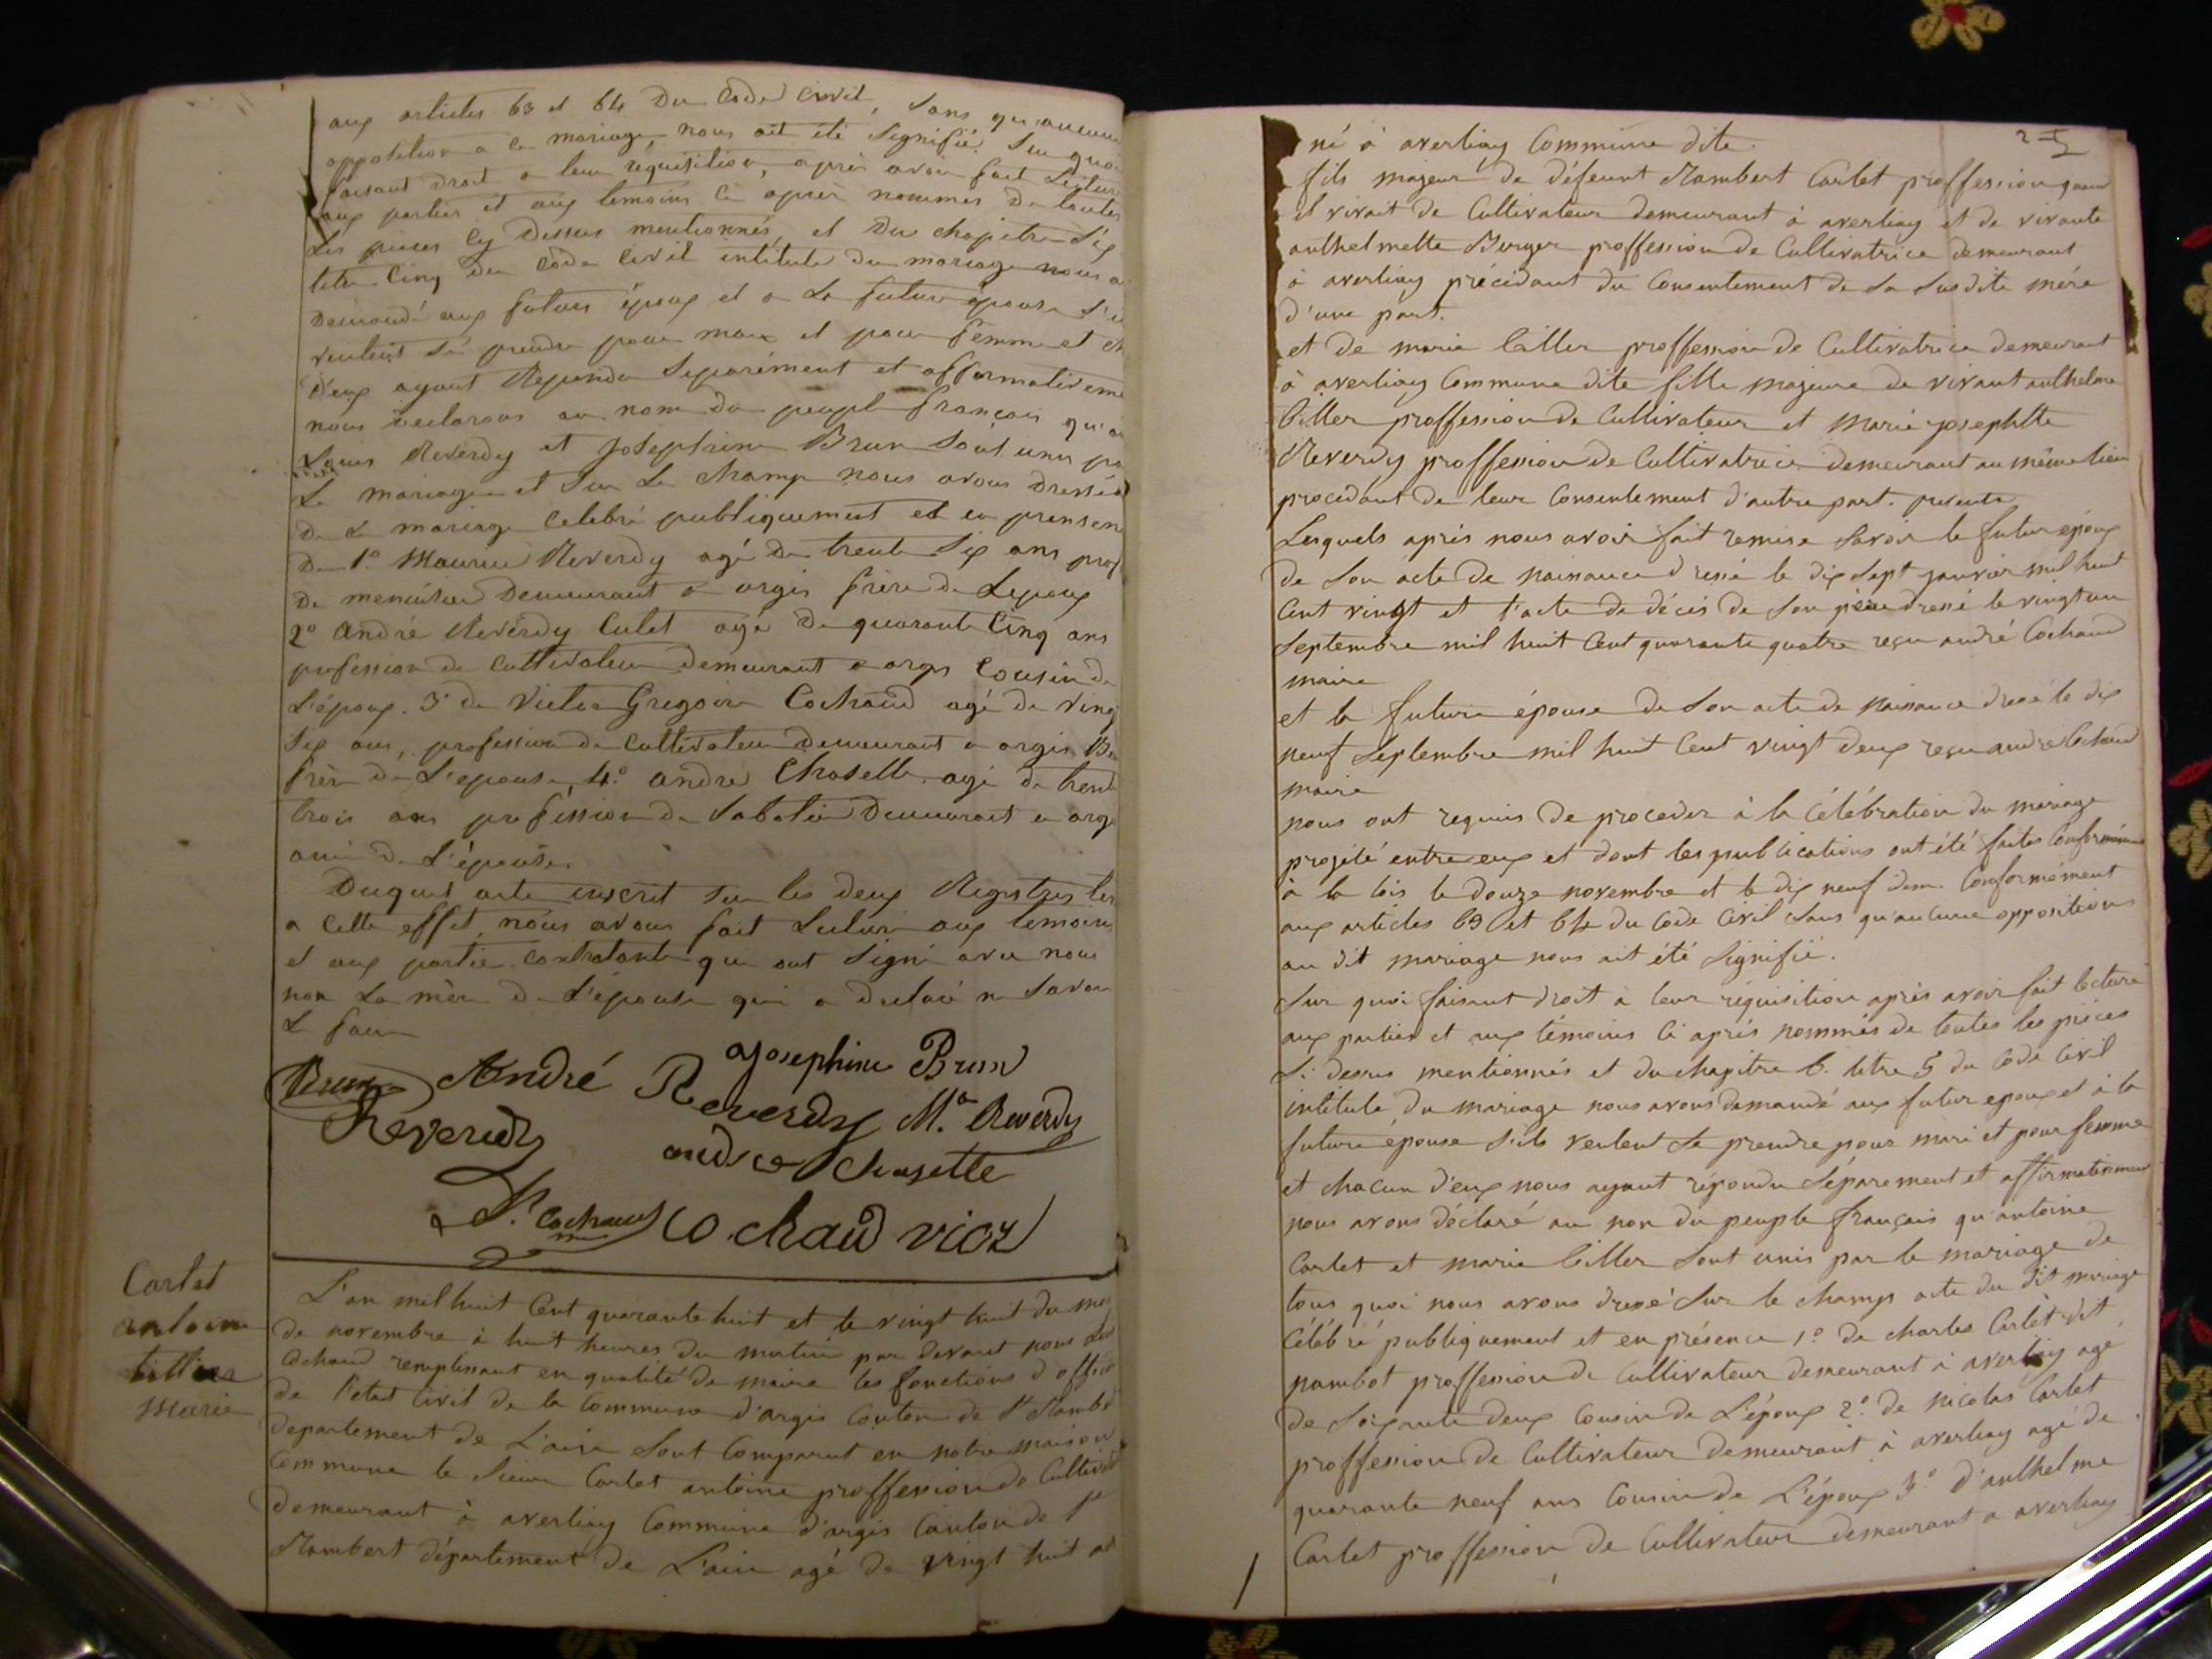 aux articles 63 et 64 Du Code Civil, Sans qu'aucune
opposition a ce mariage, nous ait été Signifié. Sur quoi
faisant Droit a leur requisition, après avoir fait Lectur
aux parties et aux temoins ci après nommés De toutes
Les pieces cy Dessus mentionnés, et Du chapitre Six
titre Cinq Du Code Civil intitulé du mariage nous a
Demandé aux futurs époux et a La future épouse S'i
veulent Se prendre pour mari et pour femme et ch
D'eux ayant Repondu Séparément et affirmativeme
nous declarons au nom du peuple français qu'
Louis Reverdy et Joséphine Brun Sont unis pa
Le mariage et Sur Le champ nous avons Dressé
De Le mariage Celebré publiquement et en presen
De 1º Maurice Reverdy agé De trente Six ans prof
De menuisier Demeurant a argis frère De Lepoux
2º andré Reverdy Culet agé De quarante Cinq ans
profession de cultivateur Demeurant a argis Cousin de
L'époux. 3º De Victor Gregoire Cochaud agé de Ving
Six ans, profession de cultivateur Demeurant a argis B
frèr de L'epouse, 4º andré Chosette agé de trent
trois ans proféssion de Sabotier Demeurant a arg
ami De L'épouse.
Duquel acte inscrit Sur les deux Registres
a Cette effet, nous avons fait Lecture aux temoins
et aux partie contratante qui ont Signé avec nous
non La mère de L'épouse qui a declaré ne Savoir
Le faire
Brun André Reverdy Josephine Brun
Reverdy Mce Reverdy
andré Chosette
Ls Cochaud Cochaud vicr
Carlet
antoine
billier
Marie
L'an mil huit Cent quarante huit et le vingt huit du moi
de novembre à huit heures du matin par devant nous
Cochaud remplissant en qualité de maire les fonctions d'offici
de l'etat Civil de la Commune d'argis Canton de St Rambe
departement de L'ain Sont Comparut en notre maison
Commune le Sieur Carlet antoine proffession de Cultiva
demeurant à averliay Commune d'argis Canton de St
Rambert département de L'ain agé de vingt huit an
25
né à averliay Commune dite.
fils majeur de défeunt Rambert Carlet proffession quand
il vivait de Cultivateur demeurant à averliay et de vivante
anthelmette Berger proffession de Cultivatrice demeurant
à averliay précédant du Consentement de Sa Susdite mère
d'une part.
et de marie biller proffession de Cultivatrice demeurant
à averliay Commune dite fille majeure de vivant anthelme
biller proffession de Cultivateur et Marie josephtte
Reverdy proffession de Cultivatrice demeurant au même lieu
procédant de leur Consentement d'autre part.
Lesquels après nous avoir fait remise Savoir le futur époux
de Son acte de naissance dressé le dix Sept janvier mil huit
Cent vingt et l'acte de décès de Son père dressé le vingt un
Septembre mil huit Cent quarante quatre reçu andré Cochaud
maire
et la future épouse de Son acte de naissance dressé le dix
neuf Septembre mil huit Cent vingt deux reçu andré Cochaud
maire
nous ont requis de proceder à la Célébration du mariage
projété entre eux et dont les publications ont été faites Conformément
à la lois le douze novembre et le dix neuf idem. Conformément
aux articles 63 et 64 du Code Civil Sans qu'aucune oppositions
au dit mariage nous ait été Signifié.
Sur quoi faisant droit à leur réquisition après avoir fait lecture
aux parties et aux témoins Ci après nommés de toutes les pièces
Si dessus mentionnés et du chapitre 6. titre 5 du Code Civil
intitulé du mariage nous avons demandé aux futur epoux et à la
future épouse S'ils veulent Se prendre pour mari et pour femme
et chacun d'eux nous ayant répondu Séparement et affirmativement
nous avons déclaré au non du peuple français qu'antoine
Carlet et marie biller Sont unis par le mariage de
tous quoi nous avons dressé Sur le champs acte du dit mariage
Célébré publiquement et en présence 1º de charles Carlet dit
nambot proffession de Cultivateur demeurant à averliay agé
de Soixante deux Cousin de L'époux 2º. de nicolas Carlet
proffession de Cultivateur demeurant à averliay agé de
quarante neuf ans Cousin de L'époux 3º d'anthelme
Carlet proffession de Cultivateur demeurant a averliay